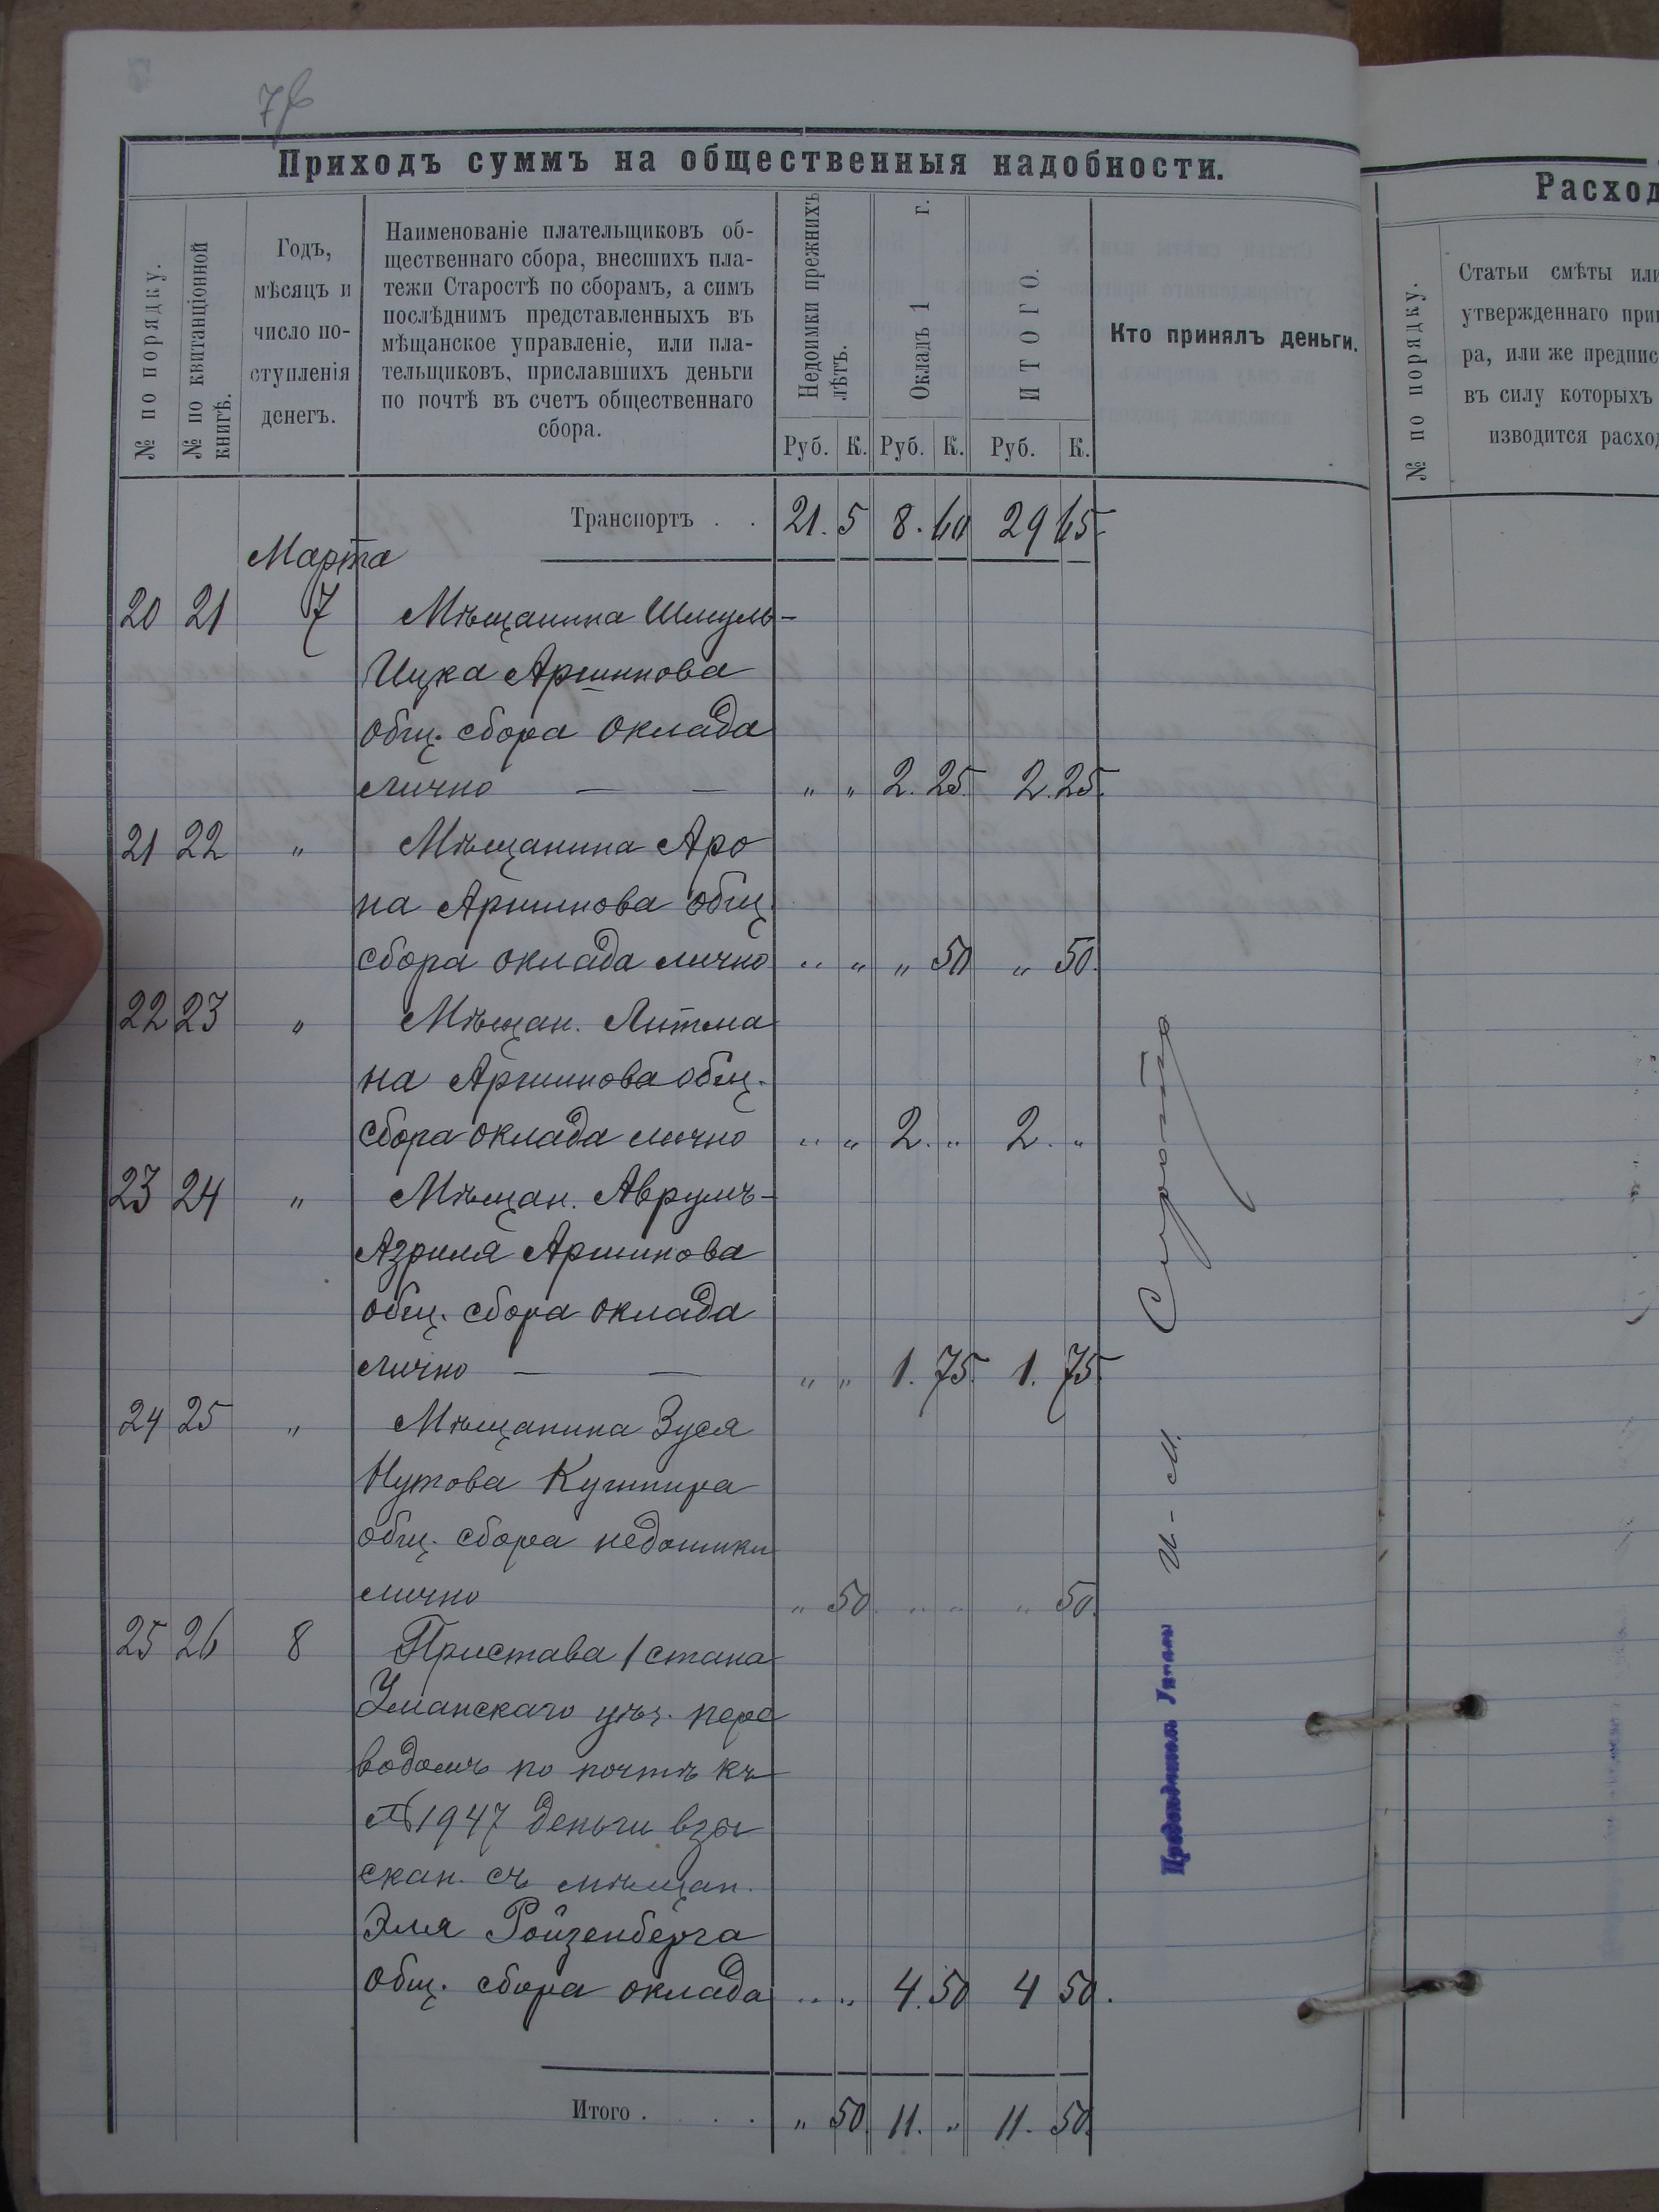 7
Приходъ суммъ на общественныя надобности.
№ по порядку.
№ по квитанціонной
книгѣ.
Годъ,
мѣсяцъ и
число по-
ступленія
денегъ.
Наименованіе плательщиковъ об-
щественнаго сбора, внесшихъ пла-
тежи Старостѣ по сборамъ, а симъ
послѣднимъ представленныхъ въ
мѣщанское управленіе, или пла-
тельщиковъ, приславшихъ деньги
по почтѣ въ счетъ общественнаго
сбора.
Недоимки прежнихъ
лѣтъ.
Окладъ 1 г.
ИТОГО.
Кто принялъ деньги.
Руб. К. Руб. К. Руб. К.
Транспортъ . . 21. 5 8. 60 29 65
Марта
20 21 7 Мѣщанина Шмуль-
Ицка Аршинова
общ. сбора оклада
лично — — " " 2. 25. 2. 25.
21 22 " Мѣщанина Аро
на Аршинова общ.
сбора оклада лично " " " 50 " 50.
22 23 " Мѣщан. Литма
на Аршинова общ.
сбора оклада лично " " 2. " 2. "
23 24 " Мѣщан. Аврумъ-
Азриля Аршинова
общ. сбора оклада
лично — — " " 1. 75. 1. 75.
24 25 " Мѣщанина Зуся
Нутова Кушнира
общ. сбора недоимки
лично " 50 " " " 50.
25 26 8 Пристава 1 стана
Уманскаго уѣз. пере
водомъ по почтѣ къ
№ 1947 деньги взы
скан. съ мѣщан.
Эля Ройзенберга
общ. сбора оклада " " 4. 50 4 50.
Итого . . . . " 50 11. " 11. 50.
И-М.
Расход
№ по порядку.
Статьи смѣты или
утвержденнаго при
ра, или же предпис
въ силу которыхъ
изводится расход